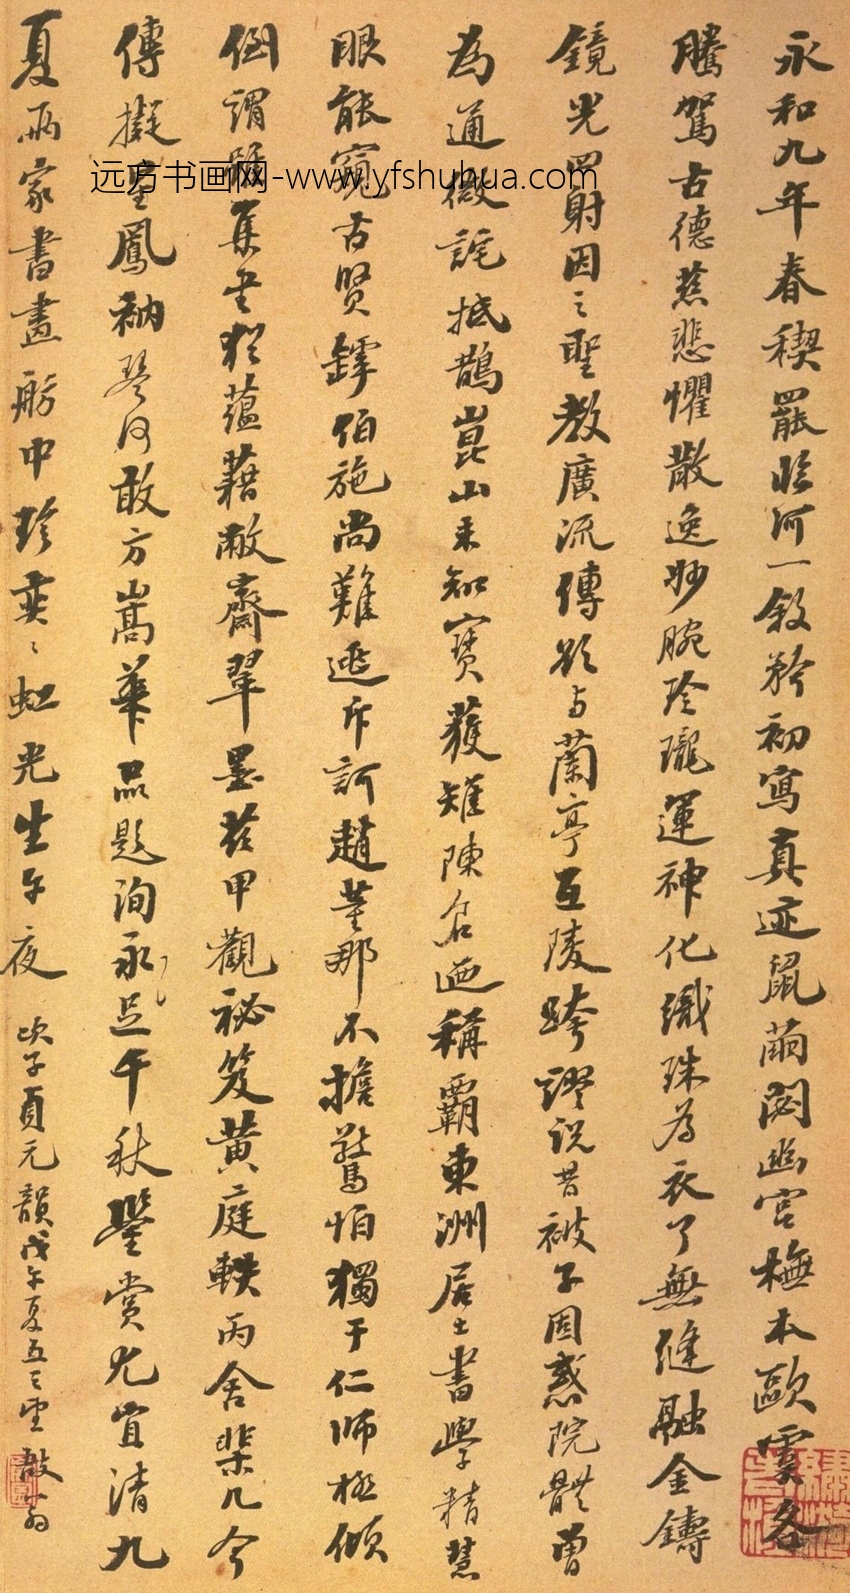 永和九年春禊罷臨河一敘矜初寫真迹鼠繭閟幽宮橅本歐虞各
騰駕古德慈悲懼散逸妙腕玲瓏運神化纖珠為衣了無縫融金鑄
鏡光四射因之聖教廣流傳欲与蘭亭互陵跨謬説昔被子固惑院體曾
為通微詫抵鵲崑山未知寶獲雉陳倉迺稱霸東洲居士書學精慧
眼能窺古賢鐸伯施尚難逃斥訶趙董那不擔驚怕獨于仁師極傾
倒謂雖集書猶蘊藉敝齋翠墨茲甲觀祕笈黃庭軼丙舍棐几今
傳擬皇鳳衲琴何敢方嵩華品題洵永足千秋鑒賞尤宜清九
夏兩家書畫舫中珍奕奕虹光生午夜
次子貞元韻戊午夏五之望散翁
远方书画网-www.yfshuhua.com